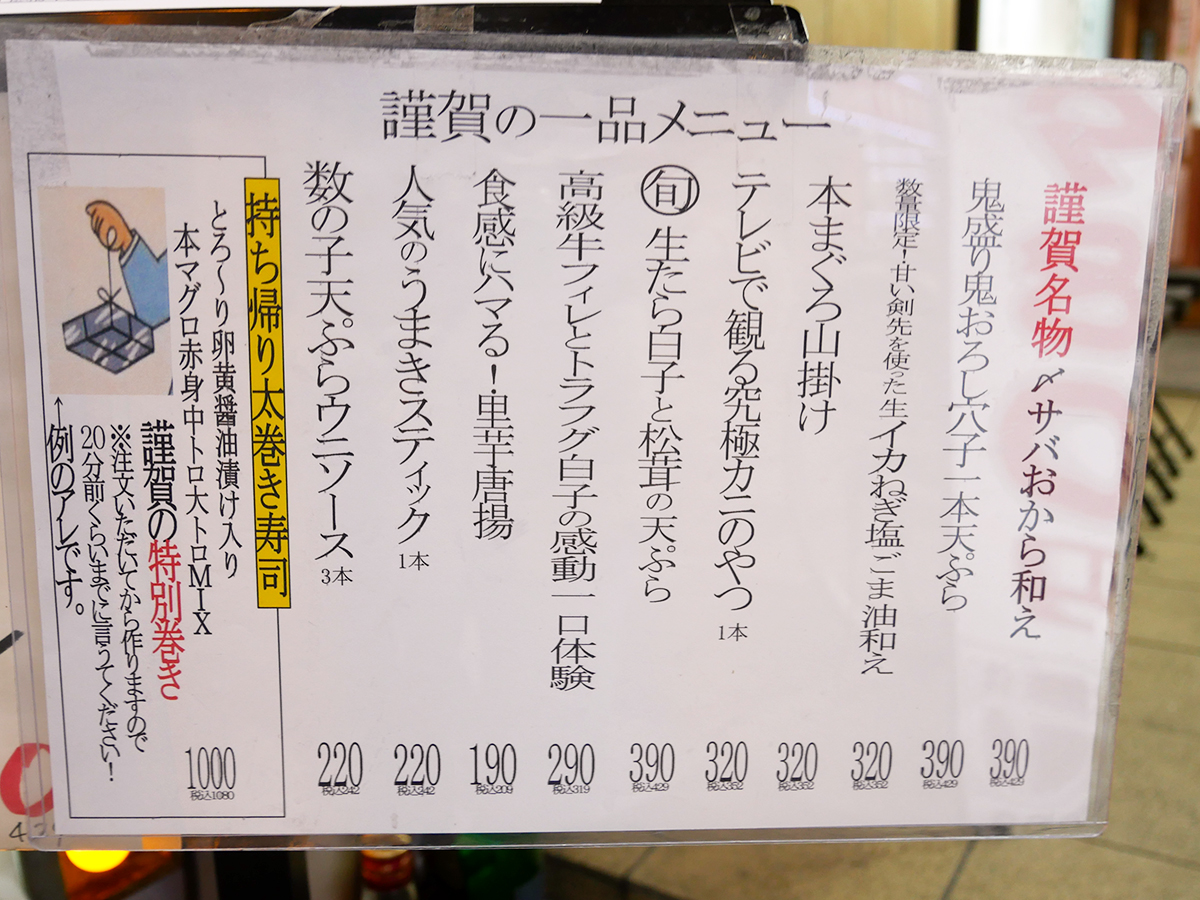 謹賀の一品メニュー
謹賀名物 〆サバおから和え
390
税込429
鬼盛り鬼おろし穴子一本天ぷら
390
税込429
数量限定！甘い剣先を使った生イカねぎ塩ごま油和え
320
税込352
本まぐろ山掛け
320
税込352
テレビで観る究極カニのやつ 1本
320
税込352
旬 生たら白子と松茸の天ぷら
390
税込429
高級牛フィレとトラフグ白子の感動一口体験
290
税込319
食感にハマる！里芋唐揚
190
税込209
人気のうまきスティック 1本
220
税込242
数の子天ぷらウニソース 3本
220
税込242
持ち帰り太巻き寿司
とろ〜り卵黄醤油漬け入り
本マグロ赤身中トロ大トロMIX
1000
税込1080
謹賀の特別巻き
※注文いただいてから作りますので
20分前くらいまでに言うてください！
↑例のアレです。